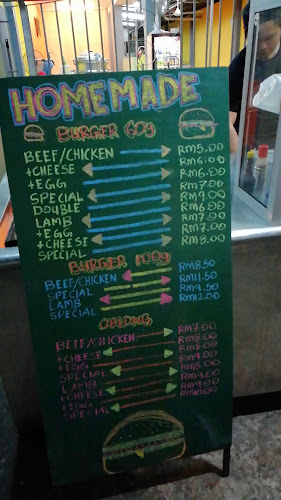 HOMEMADE
BURGER 60g
BEEF/CHICKEN RM5.00
+CHEESE RM6.00
+EGG RM6.00
SPECIAL RM7.00
DOUBLE RM9.00
LAMB RM6.00
+EGG RM7.00
+CHEESE RM7.00
SPECIAL RM8.00
BURGER
BEEF/CHICKEN RM8.50
SPECIAL RM11.50
LAMB RM9.50
SPECIAL RM12.00
OBLONG
BEEF/CHICKEN RM7.00
+CHEESE RM8.00
+EGG RM8.00
SPECIAL RM9.00
LAMB RM8.00
+CHEESE
+EGG RM9.00
SPECIAL RM10.00